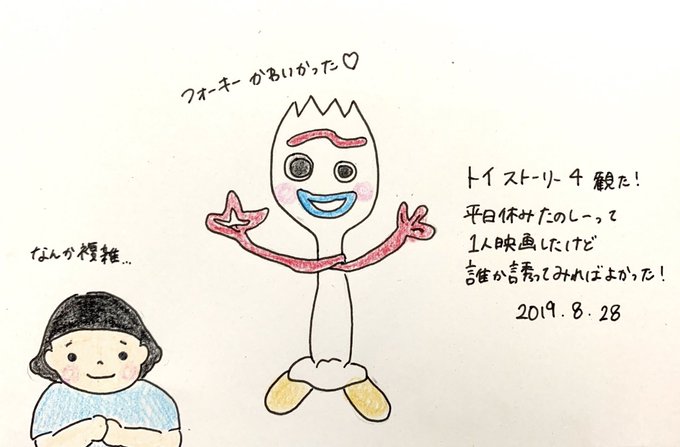 フォーキー かわいかった♡
トイストーリー4 観た!
平日休みたのしーって
1人映画したけど
誰か誘ってみればよかった!
2019.8.28
なんか複雑...